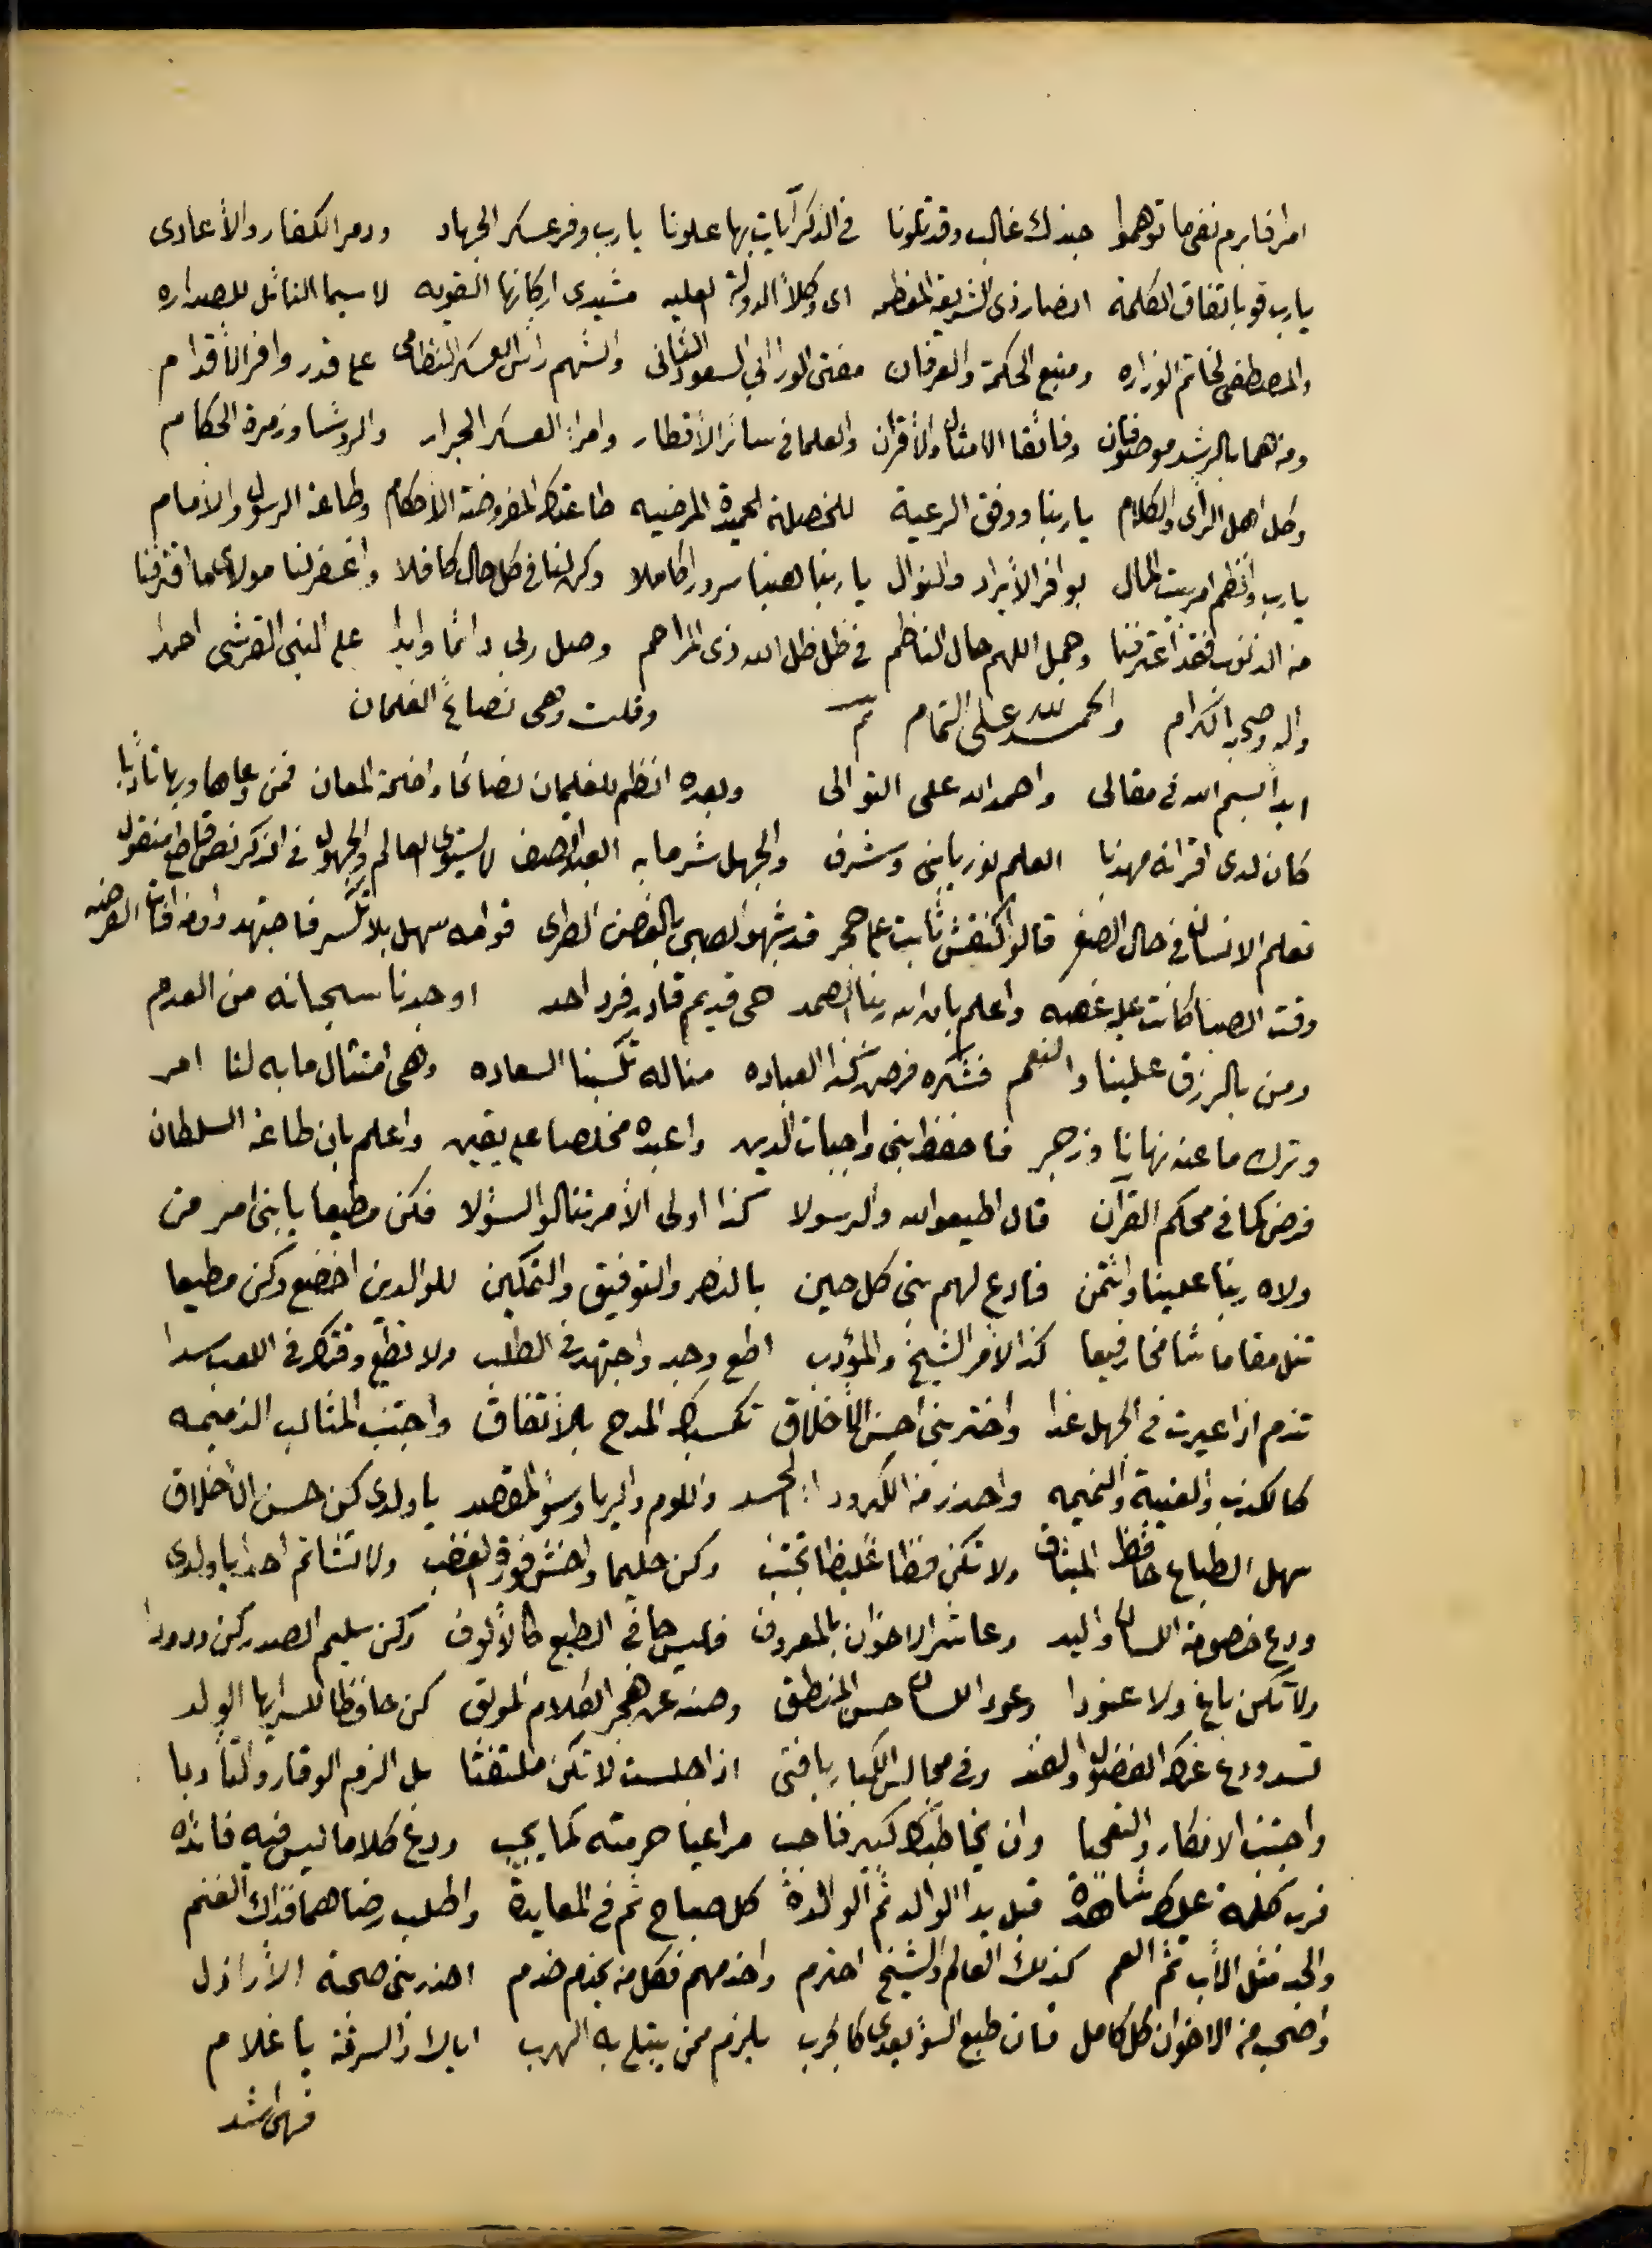 امرفابرم نفى ما توهموا جندك غالب وقد تلونا فى الذكر آيات بها علونا يارب وفر عسكر الجهاد ودمر الكفار والأعادى
يارب قو باتفاق الكلمة انصار ذى الشريعة المعظمه اى وكلاء الدولة العليه مشيدى اركانها القويه لا سيما النائل للصداره
والمصطفى لخاتم الوزاره ومنبع الحكمة والعرفان مفتى الورا السعود الثانى والشهم رأس العسكر النظامى على قدر وافر الأقدام
ومن هما بالرشد موصوفان وفائقا الامثال والأقران والعلما فى سائر الأقطار وامراء العسكر الجرار والروسا وزمرة الحكام
وكل اهل الراى والكلام ياربنا ووفق الرعية للخصلة الحميدة المرضيه طاعتك المفروضة الأحكام وطاعة الرسول والأمام
يارب وانظم امر بيت المال بوافر الأيراد والنوال ياربنا هبنا سرورا كاملا وكن لنا فى كل حال كافلا واغفر لنا مولاى ما اقترفنا
من الذنوب فقد اعترفنا وجمل اللهم حال الناظم فى ظل ظل الله ذى المراحم وصل ربى دائما وابدا على النبى القرشى احمدا
واله وصحبه الكرام والحمد لله على التمام تم وقلت وهى نصائح الغلمان
ابدأ بسم الله فى مقالى واحمد الله على التوالى وبعده انظم للغلمان نصائحا واضحة المعان فمن وعاها وبها تأدبا
كان لدى اقرانه مهذبا العلم نور يا بنى وشرف والجهل شر ما به العبد اتصف لا يستوى العالم والجهول فى الذكر نص قاطع منقول
تعلم الانسان فى حال الصغر قالوا كنقش ثابت على حجر قد شبهوا الصبى بالغصن الطرى قوامه سهل بلا تكسر فاجتهد وافات الفرصه
وقت الصبا كانت عليه غصه واعلم بان الله ربنا الصمد حى قديم قادر فرد احد اوجدنا سبحانه من العدم
ومن بالرزق علينا والنعم فشكره فرض كذا العباده مناله تكسبنا السعاده وهى امتثال ما به لنا امر
وترك ما عنه نهانا وزجر فاحفظ بنى واجبات الدين واعبده مخلصا على يقين واعلم بان طاعة السلطان
فرض كما فى محكم القرآن قال اطيعوا الله والرسولا كذا اولى الأمر تنالوا السؤلا فكن مطيعا يا بنى امر من
ولاه ربنا علينا وائتمن فادع لهم بنى كل حين بالنصر والتوفيق والتمكين للوالدين اخضع وكن مطيعا
تنل مقاما شامخا رفيعا كذا لأمر الشيخ والمؤدب اطع وجد واجتهد فى الطلب ولا تضع وقتك فى اللعب سدا
تذم اذا عيرت فى الجهل غدا واختر بنى احسن الأخلاق تكسبك المدح بالأتفاق واجتنب المثالب الذميمه
كالكذب والغيبة والنميمه واحذر من الكبر وداء الحسد واللوم والريا وسؤ المقصد يا ولدى كن حسن الأخلاق
سهل الطباع حافظ الميثاق ولا تكن فظا غليظا تجتنب وكن حليما واخش فورة الغضب ولا تشاتم احدا يا ولدى
ودع خصومة اللسان واليد وعاشر الاخوان بالمعروف فليس جافى الطبع كالألوف وكن سليم الصدر كن ودودا
ولا تكن باغ ولا عنودا وعود اللسان حسن المنطق وصنه عن هجر الكلام الموبق كن حافظا للسر ايها الولد
تسد ودع عنك الفضول والفند وفى مجالس الكبار يا فتى اذا جلست لا تكن ملتفتا بل الزم الوقار والتأدبا
واجتنب الانكار والتعجبا وان يخاطبك كبير فاجب مراعيا حرمته كما يجب ودع كلاما ليس فيه فائده
فرب كلمة عليك شاهدة قبل يد الوالد ثم الوالدة كل صباح ثم فى المعايدة واطلب رضاهما فذاك الغنم
والجد مثل الأب ثم العم كذلك العالم والشيخ احترم واخدمهم فكل من يخدم خدم احذر بنى صحبة الأراذل
واصحب من الاخوان كل كامل فان طبع السؤ يعدى كالجرب يلزم ممن يبتلى به الهرب اياك والسرقة يا غلام
فهى اشد